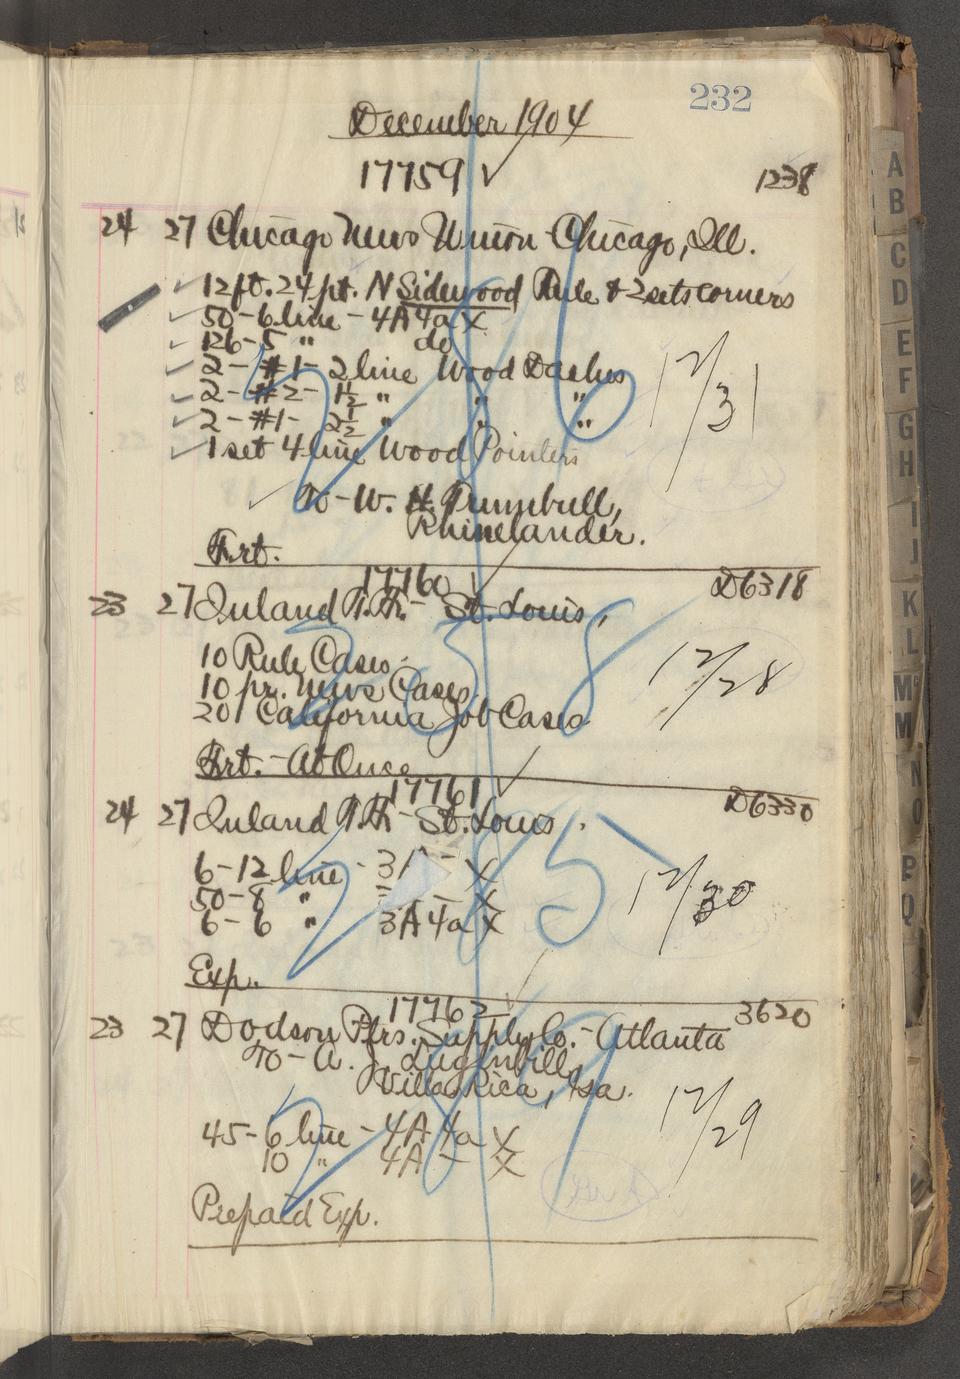 232
December 1904
17759 ✓ 1238
24 27 Chicago News Union Chicago, Ill.
✓ 12 ft. 24 pt. N Sidewood Rule & 2 sets corners
✓ 50 - 6 line - 4A 4a X
✓ 126 - 5 " do
✓ 2 - #1 - 2 line Wood Dashes
✓ 2 - #2 - 1½ " " "
✓ 2 - #1 - 2½ " " "
✓ 1 set 4 line Wood Pointers
12/31
✓ To - W. H. Trumbull,
Rhinelander.
Frt.
17760 ✓ D6318
23 27 Inland T.F. - St. Louis,
10 Rule Cases -
10 pr. News Cases
20 California Job Cases
12/28
238
Frt. - At Once
17761 ✓ D6330
24 27 Inland T.F. - St. Louis.
6 - 12 line - 3A - X
50 - 8 " - X
6 - 6 " 3A 4a X
12/30
Exp.
17762 ✓ 3620
23 27 Dodson Ptrs. Supply Co. - Atlanta
To - A. J. Lugenbill,
Villa Rica, Ga.
45 - 6 line - 4A 4a X
10 " 4A - X
12/29
Prepaid Exp.
A
B
C
D
E
F
G
H
I
J
K
L
Mc
M
N
O
P
Q